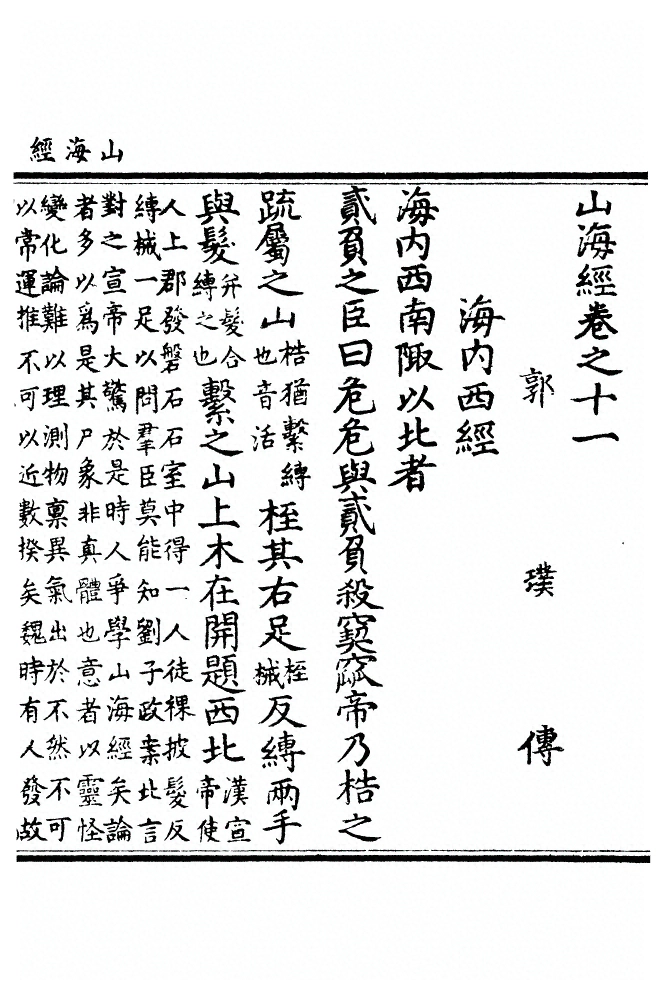 山海經
山海經卷之十一
郭璞傳
海内西經
海内西南陬以北者
貳負之臣曰危危與貳負殺窫窳帝乃梏之
疏屬之山梏猶繫縛也音活桎其右足桎械反縛兩手
與髮并髮合縛之也繫之山上木在開題西北漢宣帝使
人上郡發磐石石室中得一人徒裸披髮反
縛械一足以問羣臣莫能知劉子政案此言
對之宣帝大驚於是時人爭學山海經矣論
者多以爲是其尸象非真體也意者以靈怪
變化論難以理測物禀異氣出於不然不可
以常運推不可以近數揆矣魏時有人發故